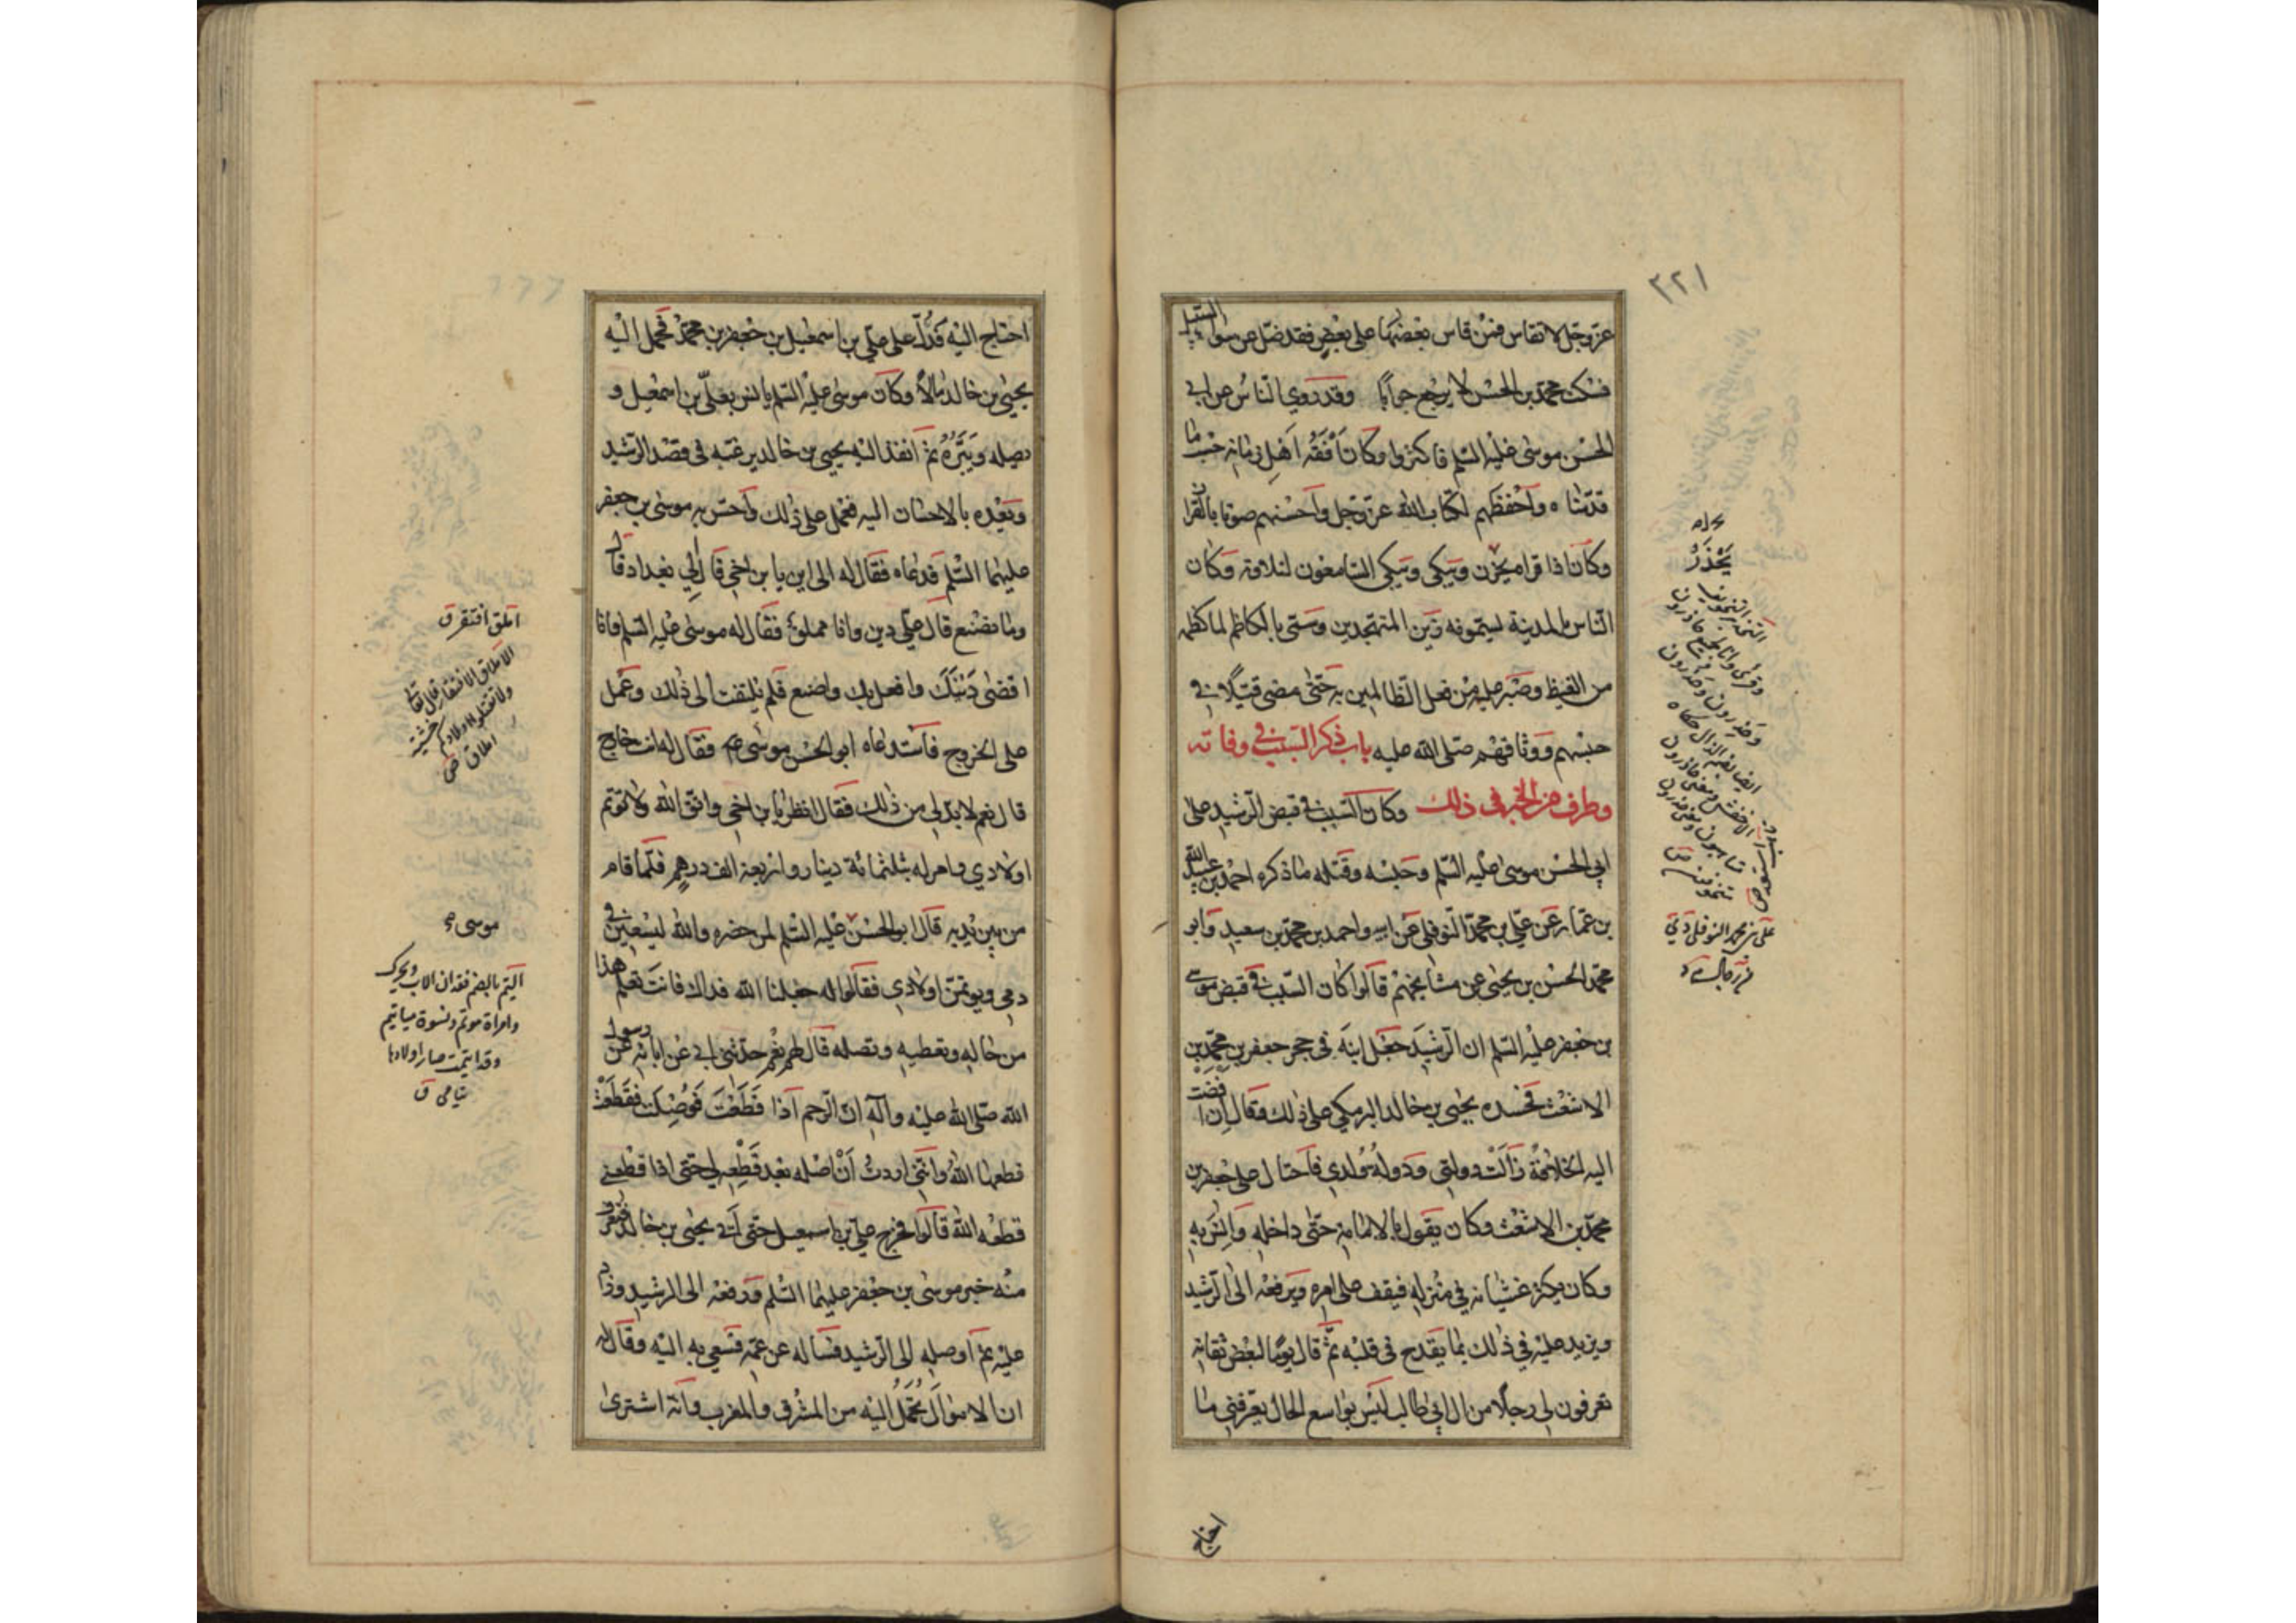 ٣٢١
عزوجل لا تقاس فمن قاس بعضها على بعض فقد ضل عن سواء السبيل
فسكت محمد بن الحسن لا يرجع جوابا وقد روي الناس عن ابي
الحسن موسى عليه السلم فاكثروا وكان افقه اهل زمانه حسب ما
قدمناه واحفظهم لكتاب الله عزوجل واحسنهم صوتا بالقران
وكان اذا قرا يحزن ويبكى ويبكى السامعون لتلاوته وكان
الناس بالمدينة يسمونه زين المتهجدين وسمى بالكاظم لما كظمه
من الغيظ وصبر عليه من فعل الظالمين به حتى مضى قتيلا في
حبسهم ووثاقهم صلى الله عليه باب ذكر السبب في وفاته
وطرف من الخبر في ذلك وكان السبب في قبض الرشيد على
ابي الحسن موسى عليه السلم وحبسه وقتله ما ذكره احمد بن عبيد الله
بن عمار عن علي بن محمد النوفلي عن ابيه واحمد بن محمد بن سعيد وابو
محمد الحسن بن يحيى عن مشايخهم قالوا كان السبب في قبض موسى
بن جعفر عليه السلم ان الرشيد جعل ابنه في حجر جعفر بن محمد بن
الاشعث فحسده يحيى بن خالد البرمكي على ذلك وقال ان افضت
اليه الخلافة زالت دولتي ودولة ولدي فاحتال على جعفر بن
محمد بن الاشعث وكان يقول بالامامة حتى داخله وانس به
وكان يكثر غشيانه في منزله فيقف على امره ويرفعه الى الرشيد
ويزيد عليه في ذلك بما يقدح في قلبه ثم قال يوما لبعض ثقاته
تعرفون لي رجلا من ال ابي طالب ليس بواسع الحال يعرفني ما
يحذر
على بن محمد النوفلي
احتاج
احتاج اليه فدل على علي بن اسمعيل بن جعفر بن محمد فحمل اليه
يحيى بن خالد مالا وكان موسى عليه السلم يانس بعلي بن اسمعيل و
يصله ويبره ثم انفذ اليه يحيى بن خالد يرغبه في قصد الرشيد
ويعده بالاحسان اليه فعمل على ذلك واحس به موسى بن جعفر
عليهما السلم فدعاه فقال له الى اين يا بن اخي قال الي بغداد قال
وما تصنع قال علي دين وانا مملق فقال له موسى عليه السلم فانا
اقضى دينك وافعل بك واصنع فلم يلتفت الى ذلك وعمل
على الخروج فاستدعاه ابو الحسن موسى ع فقال له انت خارج
قال نعم لا بد لي من ذلك فقال انظر يا بن اخي واتق الله ولا توتم
اولادي وامر له بثلثمائة دينار واربعة الف درهم فلما قام
من بين يديه قال ابو الحسن عليه السلم لمن حضره والله ليسعين في
دمي ويوتمن اولادي فقالوا له جعلنا الله فداك فانت تعلم هذا
من حاله وتعطيه وتصله قال لهم نعم حدثني ابي عن ابائه عن رسول
الله صلى الله عليه واله ان الرحم اذا قطعت فوصلت فقطعت
قطعها الله وانني اردت ان اصله بعد قطعه لي حتى اذا قطعني
قطعه الله قالوا فخرج علي بن اسمعيل حتى اتى يحيى بن خالد فتعرف
منه خبر موسى بن جعفر عليهما السلم ورفعه الى الرشيد وزاد
عليه ثم اوصله الى الرشيد فساله عن عمه فسعى به اليه وقال له
ان الاموال تحمل اليه من المشرق والمغرب وانه اشترى
املق افتقر ق
الاملاق الافتقار قال تعالى
ولا تقتلوا اولادكم خشية
املاق ص
موسى ع
اليتم بالضم فقدان الاب ويحرك
وامراة موتم ونسوة مياتيم
وقد ايتمت صار اولادها
يتامى ق